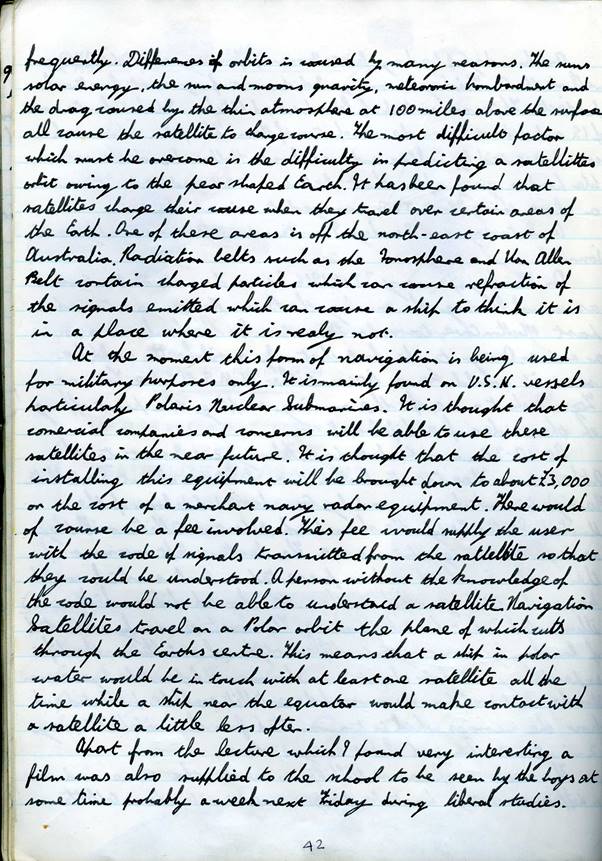 frequently. Differences of orbits is caused by many reasons. The suns
9, solar energy, the sun and moons gravity, meteoric bombardment and
the drag caused by the thin atmosphere at 100 miles above the surface
all cause the satellite to change course. The most difficult factor
which must be overcome is the difficulty in predicting a satellites
orbit owing to the pear shaped Earth. It has been found that
satellites change their course when they travel over certain areas of
the Earth. One of these areas is off the north-east coast of
Australia. Radiation belts such as the Ionosphere and Van Allen
Belt contain charged particles which can cause refraction of
the signals emitted which can cause a ship to think it is
in a place where it is realy not.
At the moment this form of navigation is being used
for military purposes only. It is mainly found on U.S.N. vessels
particulaly Polaris Nuclear Submarines. It is thought that
comercial companies and concerns will be able to use these
satellites in the near future. It is thought that the cost of
installing this equipment will be brought down to about £3,000
or the cost of a merchant navy radar equipment. There would
of course be a fee involved. This fee would supply the user
with the code of signals transmitted from the satellite so that
they could be understood. A person without the knowledge of
the code would not be able to understand a satellite. Navigation
Satellites travel on a Polar orbit the plane of which cuts
through the Earths centre. This means that a ship in polar
water would be in touch with at least one satellite all the
time while a ship near the equator would make contact with
a satellite a little less often.
Apart from the lecture which I found very interesting a
film was also supplied to the school to be seen by the boys at
some time probably a week next Friday during liberal studies.
42